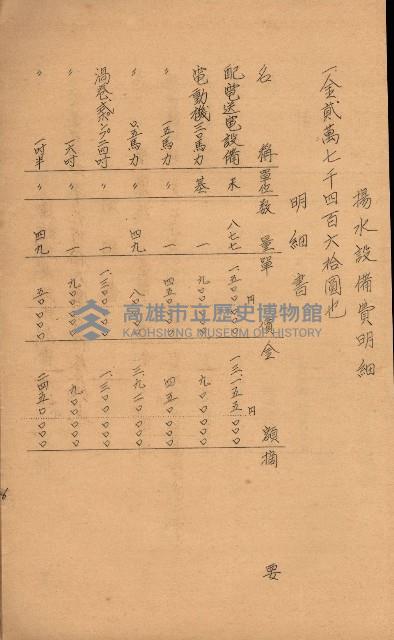 揚水設備費明細
一金貳萬七千四百六拾圓也
明細書
名稱 單位 數量 單價 金額 摘要
配電送電設備 米 八七七 一五〇〇〇円 一三、一五五〇〇〇円
電動機三〇馬力 基 一 九〇〇〇〇 九〇〇〇〇
〃 一五馬力 〃 一 四五〇〇〇〇 四五〇〇〇〇
〃 〇.五馬力 〃 四九 八〇〇〇〇 三、九二〇〇〇〇
渦巻式ポンプ二四吋 〃 一 一、三〇〇〇〇〇 一、三〇〇〇〇〇
〃 一六吋 〃 一 九〇〇〇〇 九〇〇〇〇
〃 一吋半 〃 四九 五〇〇〇〇 二四五〇〇〇〇
高雄市立歷史博物館
KAOHSIUNG MUSEUM OF HISTORY